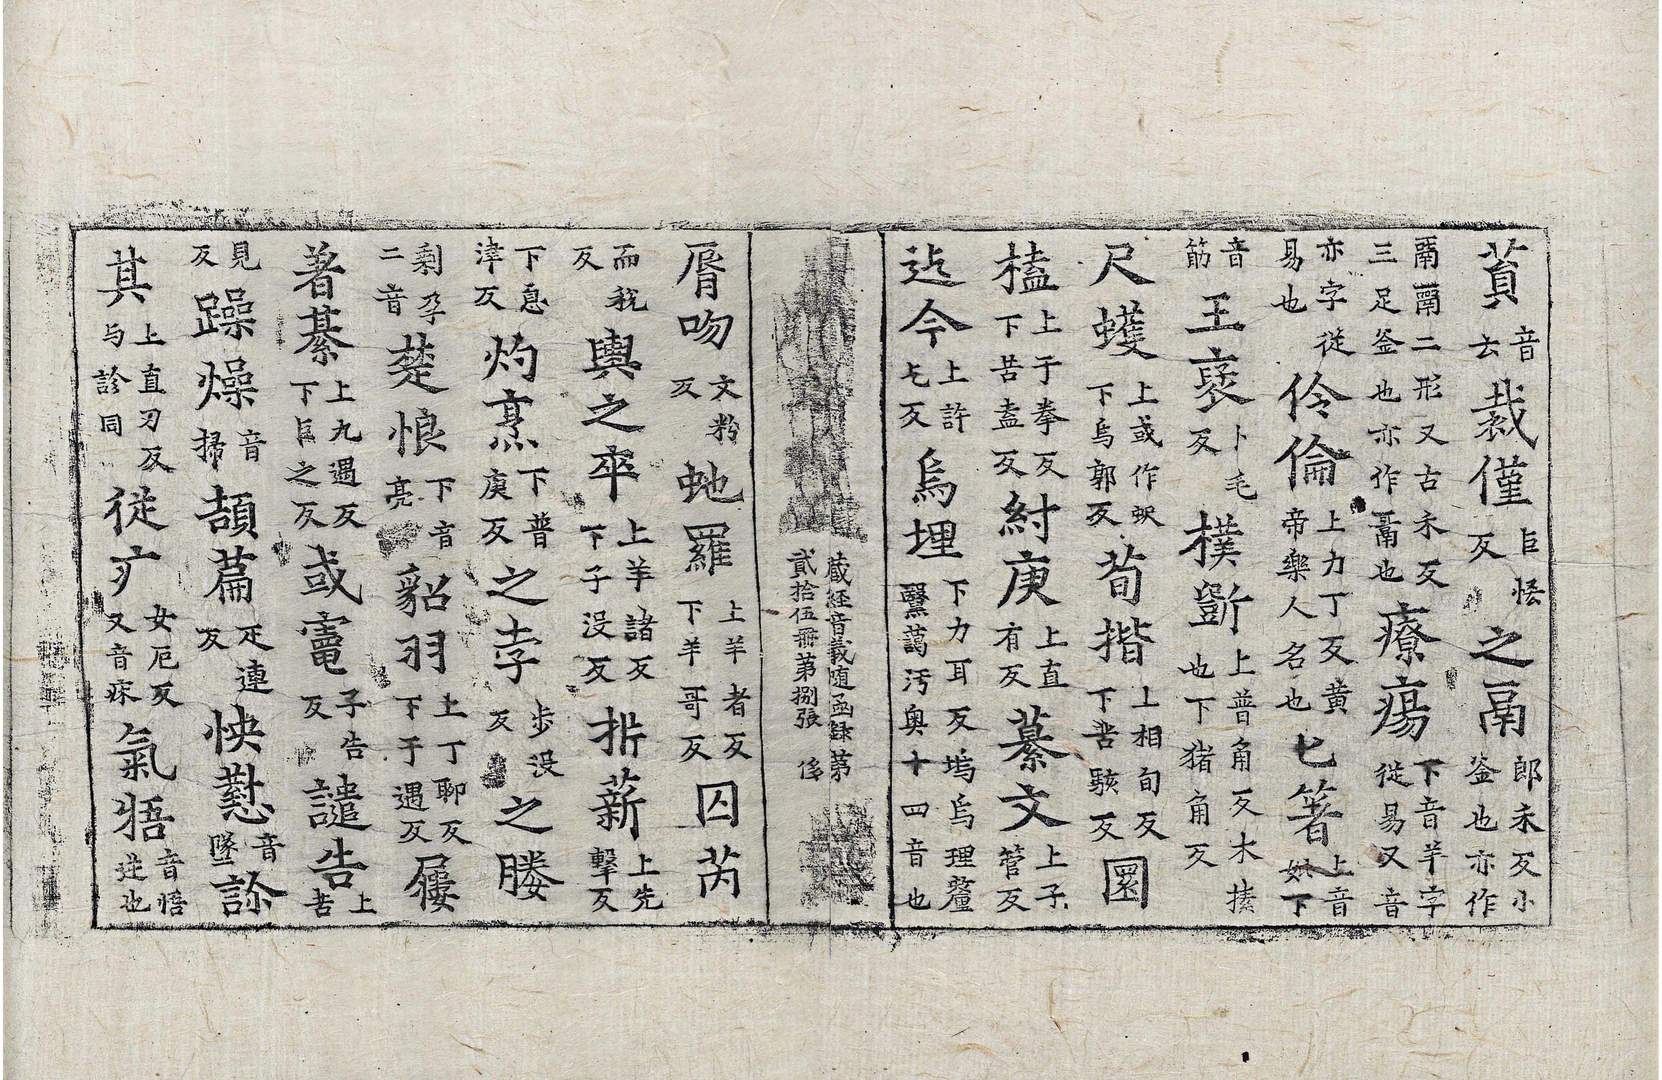 蒷音云裁僅巨恡反之鬲郎禾反小釜也亦作
鬲䰛二形又古禾反三足釜也亦作鬵也療瘍下音羊字從昜又音
亦字從易也伶倫上力丁反黄帝樂人名也匕箸上音妣下
音筋王裒卜毛反樸斵上普角反木摏也下猪角反
尺蠖上或作蚇下烏郭反荀揩上相旬反下苦駭反圂
榼上于拳反下苦盍反紂庚上直有反纂文上子管反
迄今上許乞反烏埋下力耳反塢烏理釐翳藹汚奥十四音也
藏経音義随函録第貳拾伍冊第捌張 俢
脣吻文粉反虵羅上羊者反下羊哥反囚芮
而稅反輿之卒上羊諸反下子没反折薪上先擊反
下息津反灼烹下普庚反之孛步没反之媵
剩孕二音楚悢下音亮貂羽上丁聊反下于遇反屨
著綦上九遇反下巨之反或竃子告反譴告上苦
見反躁燥音掃頡扁疋連反怏懟音墜診
其上直刃反与診同從疒女厄反又音疒氣牾音悟逆也